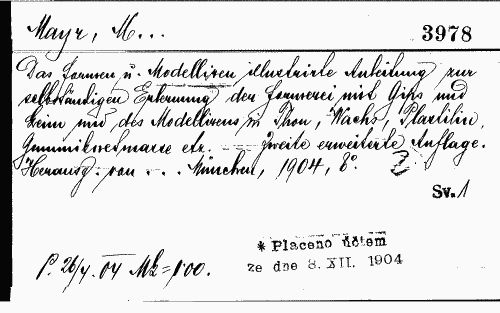 Mayr, M...
3978
Das Formen u. Modelliren illustrirte Anleitung zur
selbständigen Erlernung der Formerei mit Gips und
Leim und des Modellirens in Thon, Wachs, Plastilin,
Gummiknetmasse etc. — Zweite erweiterte Auflage.
Herausg. von ... München, 1904, 8°.
Sv. 1
* Placeno účtem
ze dne 8. XII. 1904
P. 26/4. 04 Mk = 1·00.